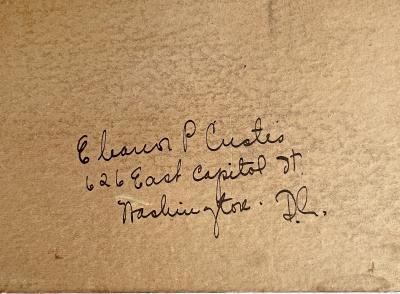 Eleanor P Custis
626 East Capitol St.
Washington. D.C.